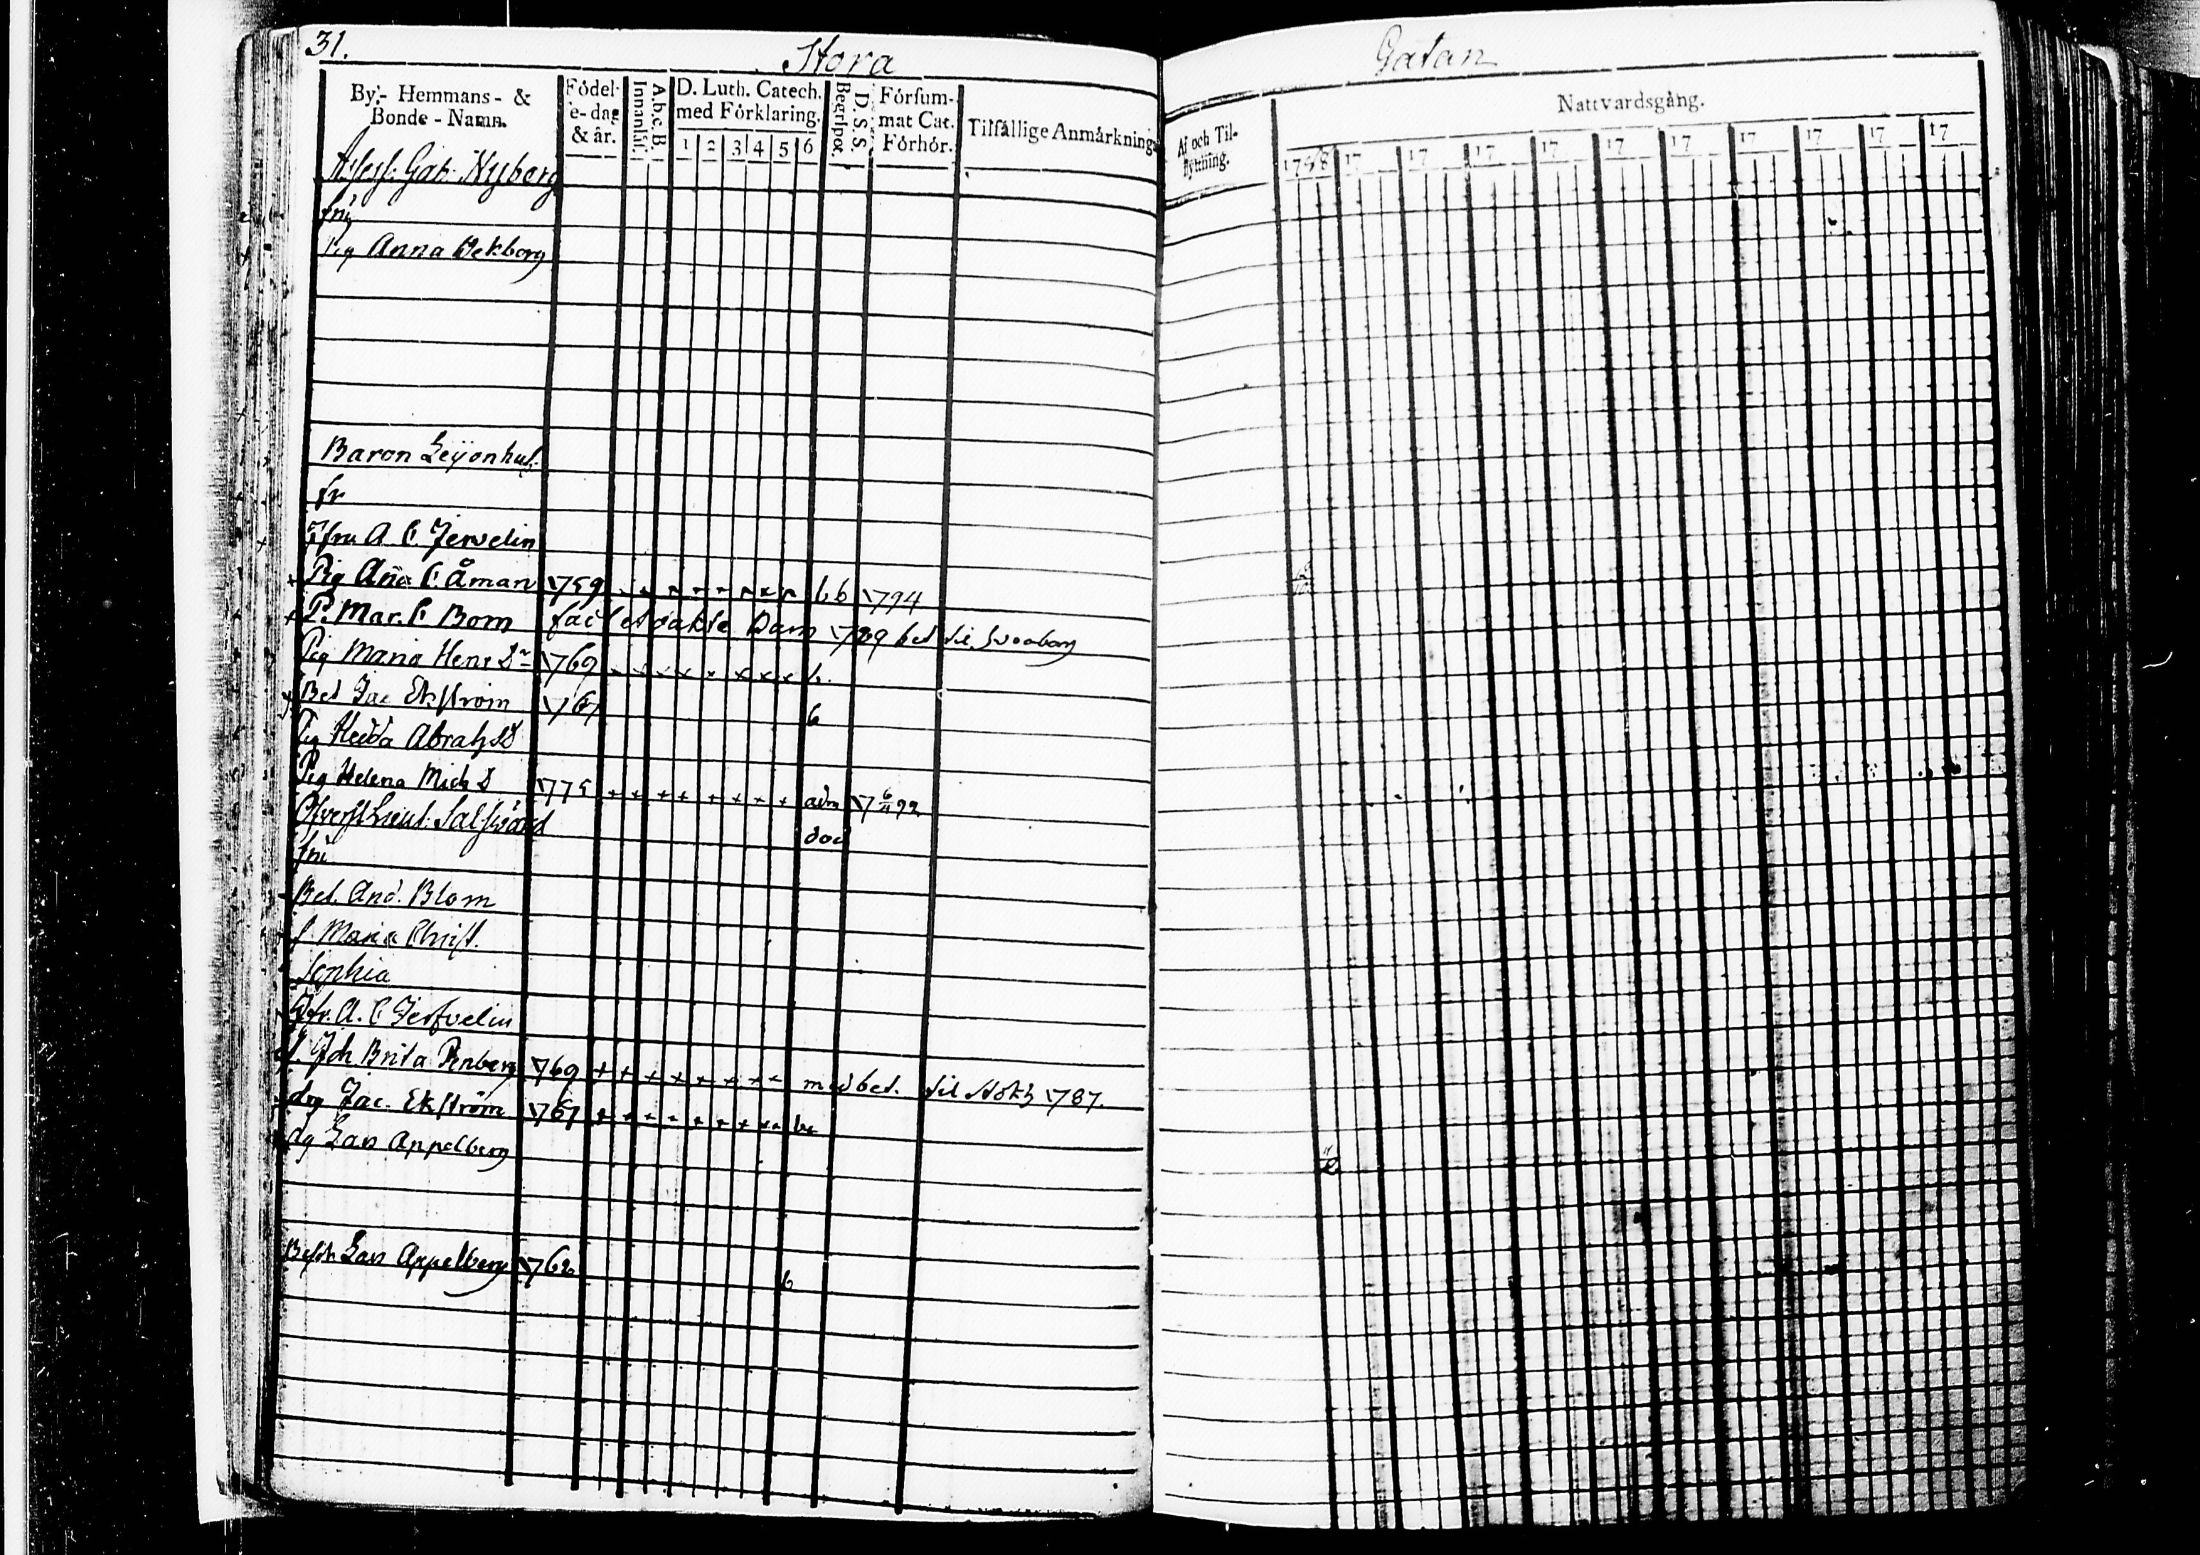 31.
Stora
By- Hemmans- & Bonde-Namn.
Födelse-dag & år.
Innanläs.
A.b.c.B.
D. Luth. Catech. med Förklaring.
1 2 3 4 5 6
Begripet.
D. S. S.
Försummat Cat. Förhör.
Tilfällige Anmärkning
Assess: Gab: Nyberg
fru
Pig Anna Wekborg
Baron Leijonhuf.
fr
Jfru A. C. Jervelin
Pig Aña C. Åman 1759 b b 1794
P. Mar. C Bom fåt et oäkta Barn 1789 bet til Sveaborg
Pig Maria Henr Dr 1769 b.
Bet Jac Ekström 1767 b
Pig Hedda Abrah D
Pig Helena Mich D 1775 + + + + + + + + adm 17 6/11 92
Öfverst Lieut: Salsvärd död
fru
Bet. And. Blom
f. Maria Christ.
Sophia
Jfr. A. C Jerfvelin
Joh Brita Penberg 1769 + + + + + + + + med bet. til Stokh 1787.
drg Jac. Ekström 1767
dg Lars Appelberg
Lars Appelberg 1762 b
Gatan
Af och Tilflyttning.
Nattvardsgång.
1788 17 17 17 17 17 17 17 17 17 17